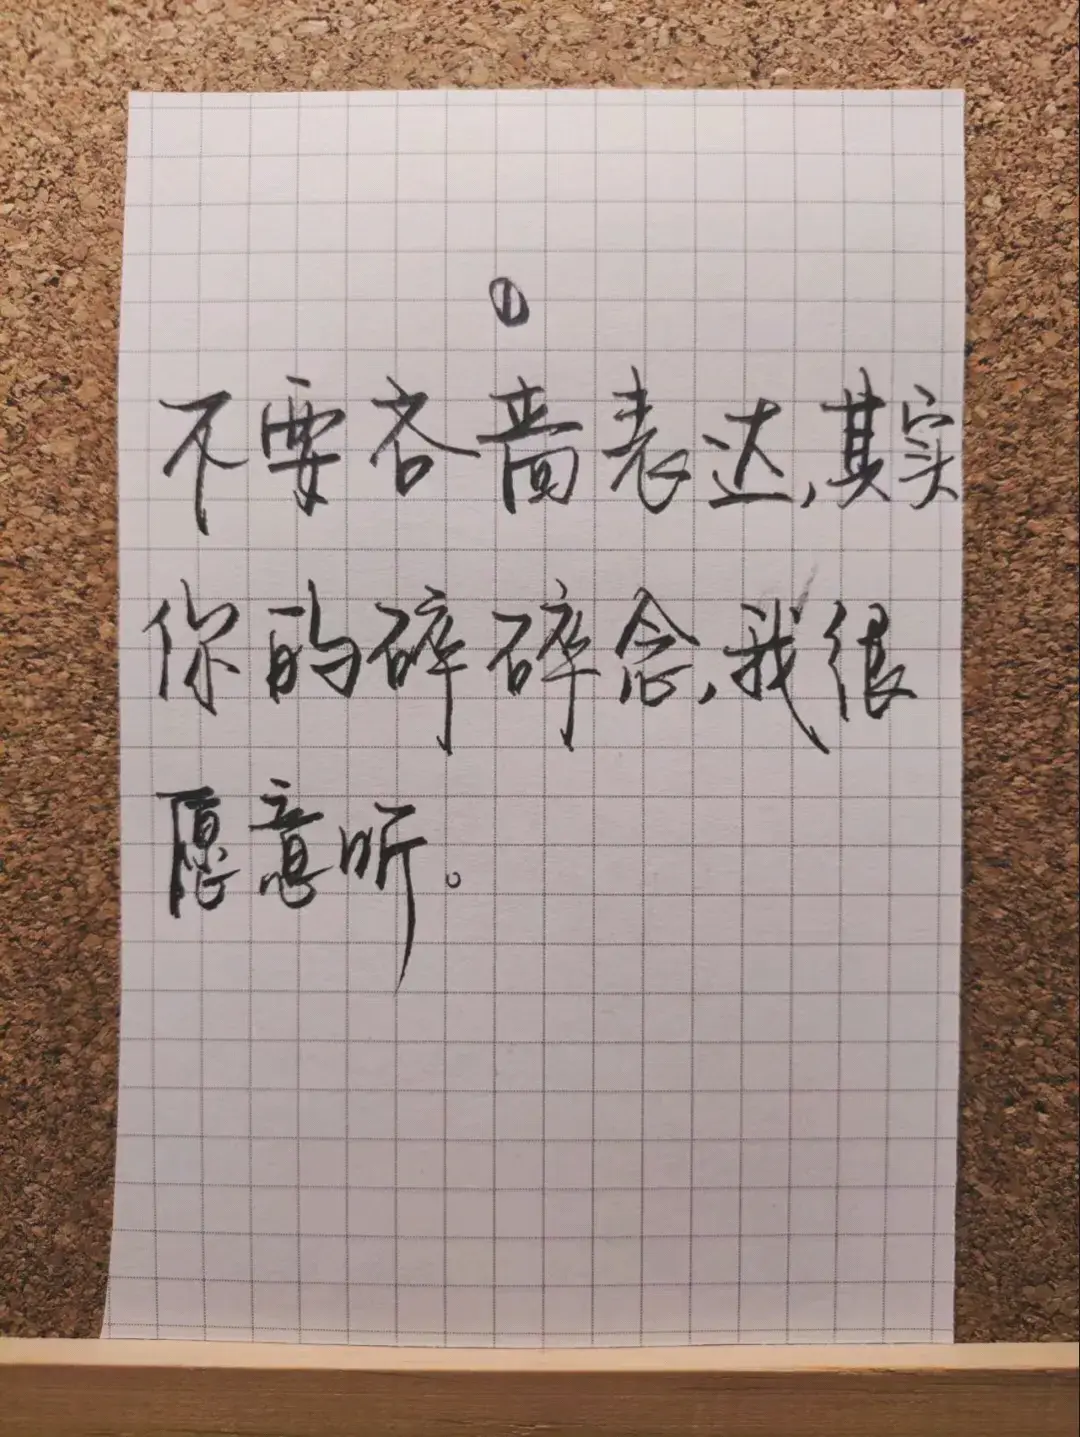 ①
不要吝啬表达,其实
你的碎碎念,我很
愿意听。